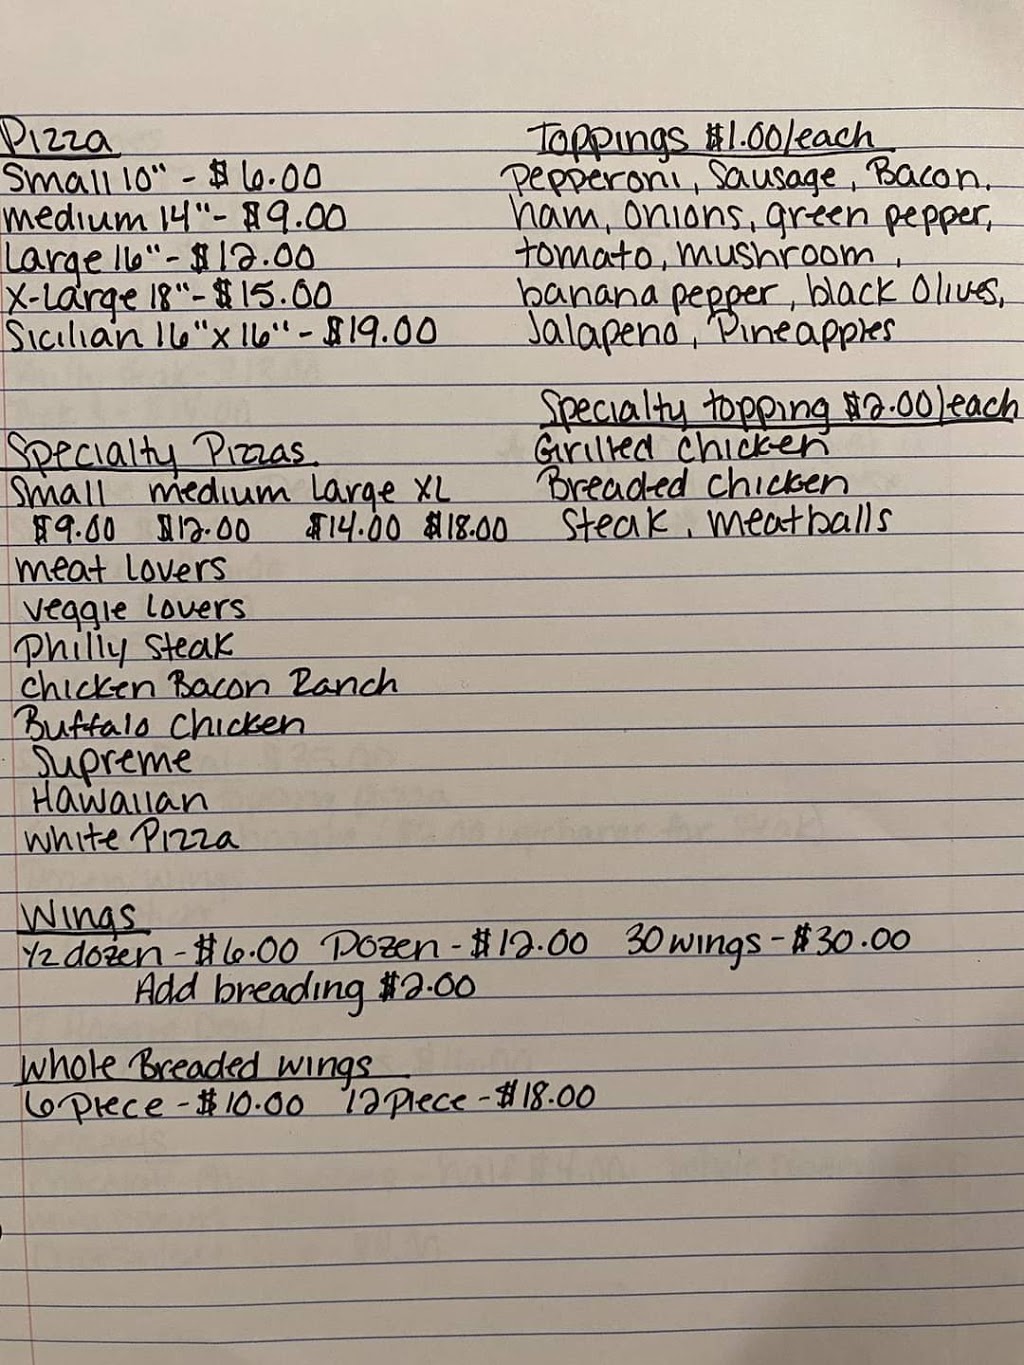 Pizza
Small 10" - $6.00
medium 14" - $9.00
Large 16" - $12.00
X-Large 18" - $15.00
Sicilian 16" x 16" - $19.00
Toppings $1.00/each
pepperoni, Sausage, Bacon,
ham, onions, green pepper,
tomato, mushroom,
banana pepper, black Olives,
Jalapeno, Pineapples
Specialty topping $2.00/each
Grilled chicken
Breaded chicken
Steak, meatballs
Specialty Pizzas
Small medium Large XL
$9.00 $12.00 $14.00 $18.00
meat Lovers
veggie Lovers
Philly Steak
Chicken Bacon Ranch
Buffalo Chicken
Supreme
Hawaiian
White Pizza
Wings
1/2 dozen - $6.00 Dozen - $12.00 30 wings - $30.00
Add breading $2.00
Whole Breaded wings
6 piece - $10.00 12 piece - $18.00